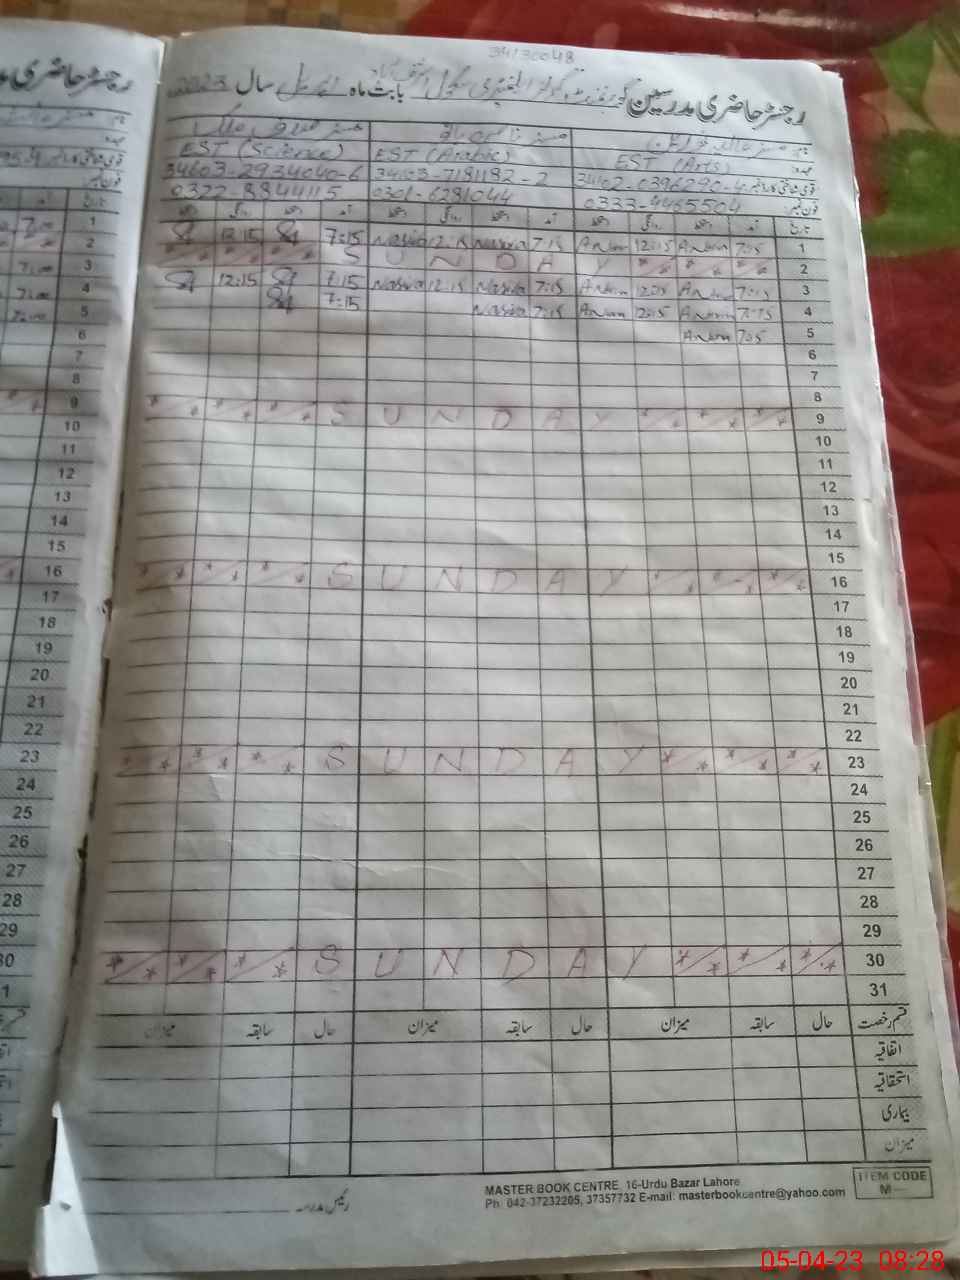 34130048
رجسٹر حاضری مدرسین گورنمنٹ گرلز ایلیمنٹری سکول بابت ماہ اپریل سال 2023
نام مسز
عہدہ EST (Arts) EST (Arabic) EST (Science)
قومی شناختی کارڈ نمبر 34102-0396290-4 34103-7181182-2 34603-2934040-6
فون نمبر 0333-9465504 0301-6281044 0322-8844115
تاریخ آمد دستخط روانگی دستخط آمد دستخط روانگی دستخط آمد دستخط روانگی دستخط
1 12:15 7:15 Nasira 12:15 Nasira 7:15 Anum 12:15 Anum 7:15
2 S U N D A Y
3 12:15 7:15 Nasira 12:15 Nasira 7:15 Anum 12:15 Anum 7:15
4 7:15 Nasira 7:15 Anum 12:15 Anum 7:15
5 Anum 7:15
6
7
8
9 S U N D A Y
10
11
12
13
14
15
16 S U N D A Y
17
18
19
20
21
22
23 S U N D A Y
24
25
26
27
28
29
30 S U N D A Y
31
قسم رخصت حال سابقہ میزان حال سابقہ میزان حال سابقہ میزان
اتفاقیہ
استحقاقیہ
بیماری
میزان
رئیس مدرسہ
MASTER BOOK CENTRE, 16-Urdu Bazar Lahore
Ph. 042-37232205, 37357732 E-mail: masterbookcentre@yahoo.com
ITEM CODE
M—
05-04-23 08:28